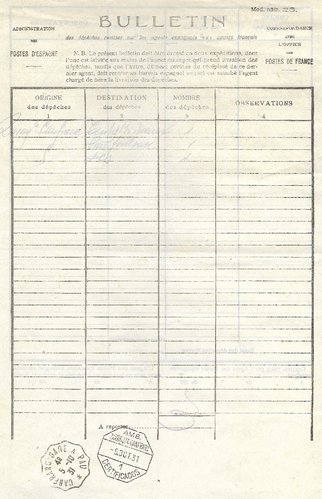 Mod. núm. 
BULLETIN
ADMINISTRATION
DES
POSTES D'ESPAGNE
des dépêches remises par les agents espagnols aux agents français
N. B. Le présent bulletin doit être dressé en deux expéditions, dont
l'une est laissée aux mains de l'agent qui prend livraison des
dépêches, tandis que l'autre, dûment revêtue du récépissé de ce der-
nier agent, doit rentrer au bureau espagnol auquel est attaché l'agent
chargé de faire la livraison des dépêches.
CORRESPONDANCE
AVEC
L'OFFICE
DES
POSTES DE FRANCE
ORIGINE
des dépêches
1
DESTINATION
des dépêches
2
NOMBRE
des dépêches
3
OBSERVATIONS
4
A reporter
CANFRANC GARE A PAU
5-10
31
AMB.
-5.OCT.31
1
CERTIFICADOS